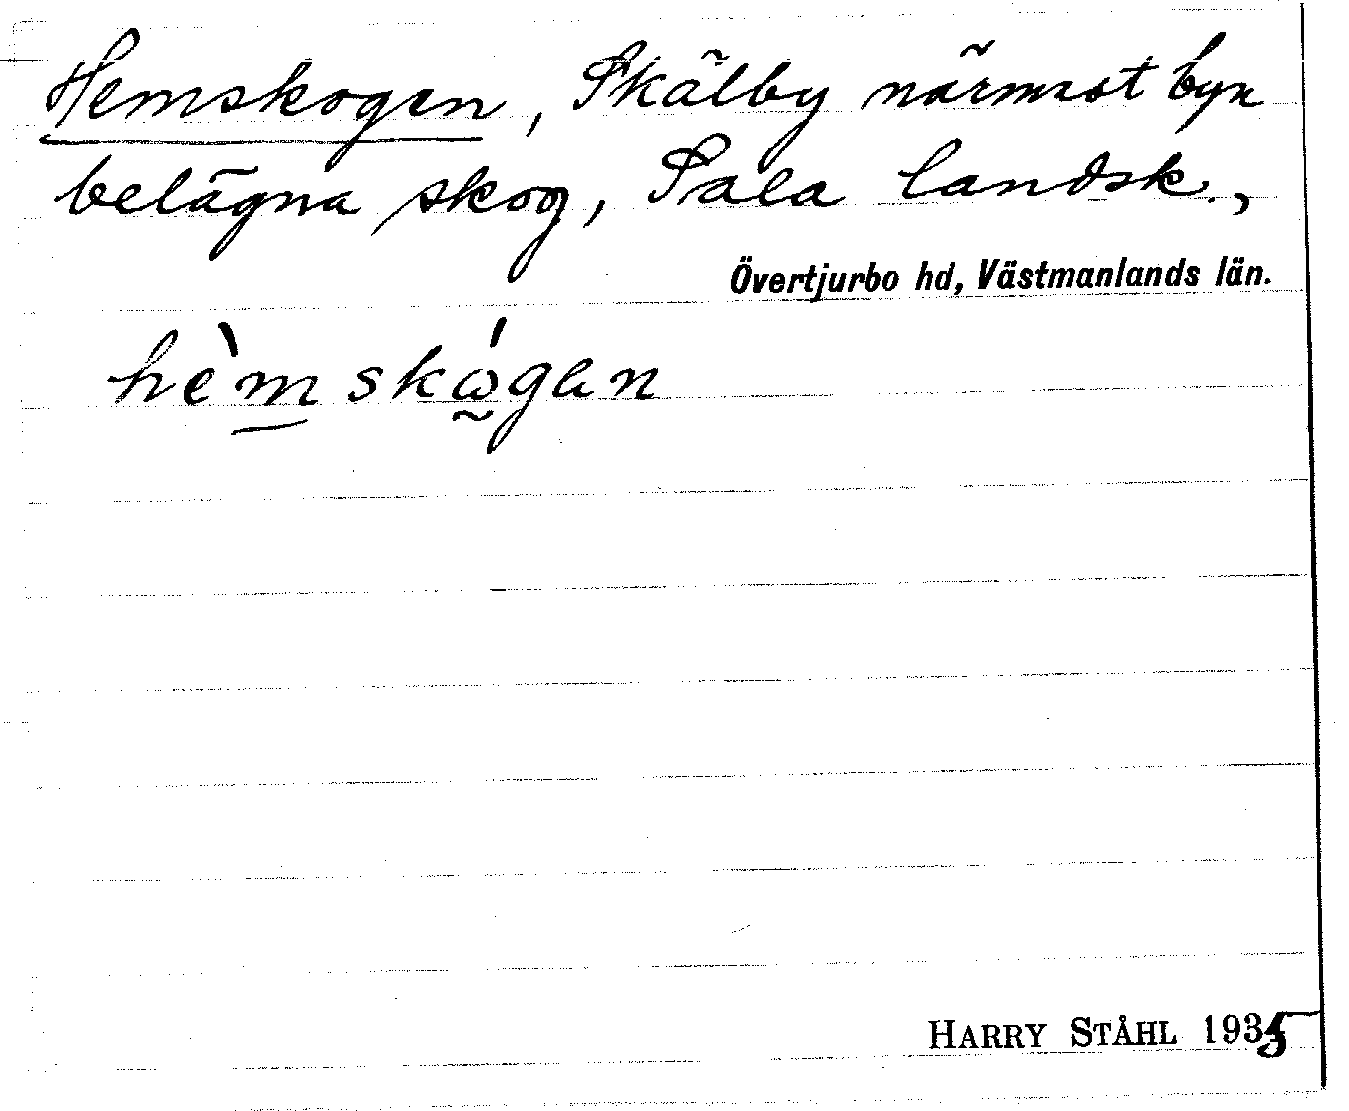 Hemskogen, Skälby närmast byn
belägna skog, Sala landsk.,
Övertjurbo hd, Västmanlands län.
hèm̲skώ̰gan
HARRY STÅHL 1935